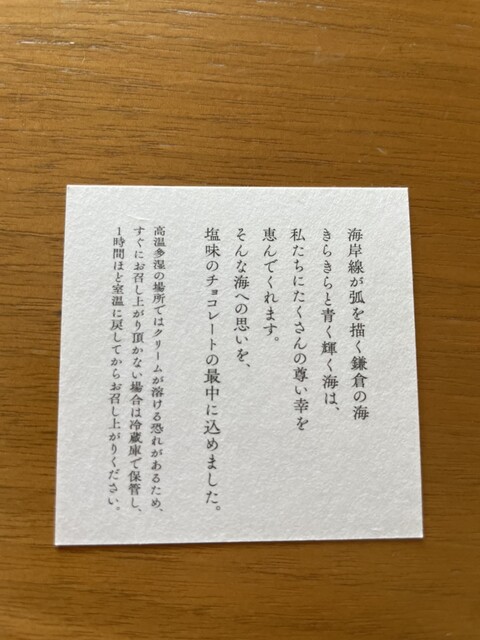 海岸線が弧を描く鎌倉の海
きらきらと青く輝く海は、
私たちにたくさんの尊い幸を
恵んでくれます。
そんな海への思いを、
塩味のチョコレートの最中に込めました。
高温多湿の場所ではクリームが溶ける恐れがあるため、
すぐにお召し上がり頂かない場合は冷蔵庫で保管し、
1時間ほど室温に戻してからお召し上がりください。